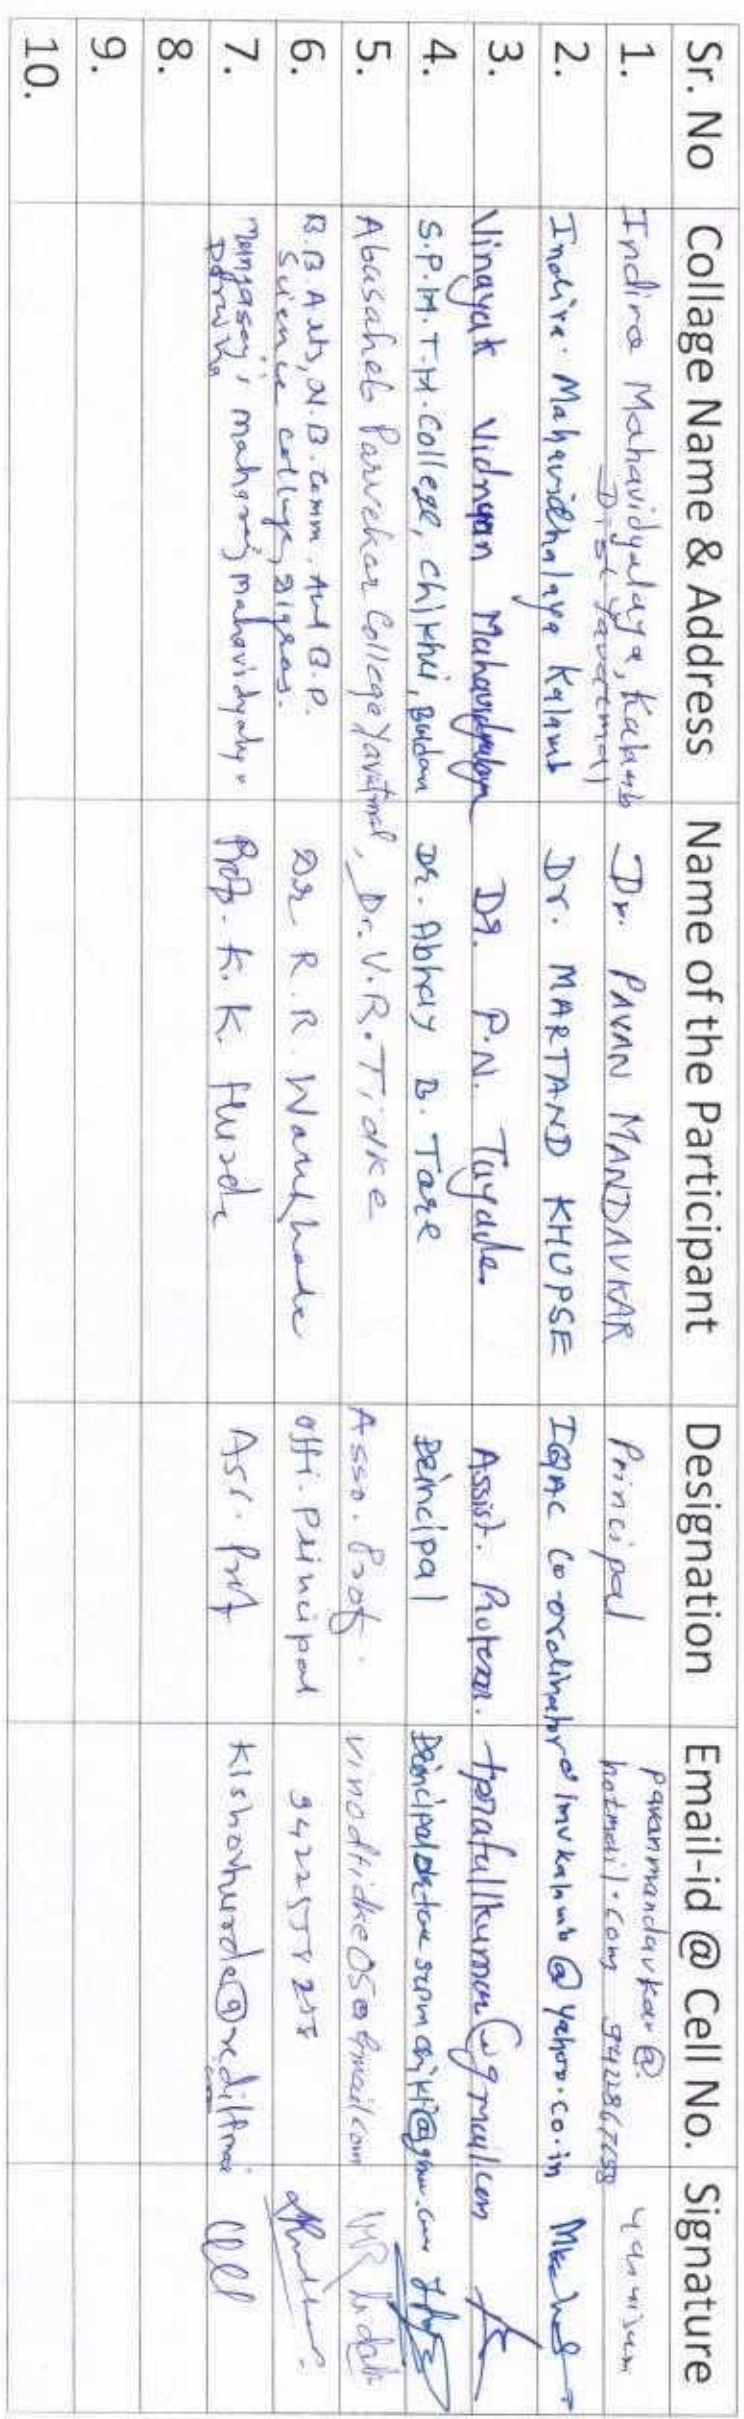 Sr. No Collage Name & Address Name of the Participant Designation Email-id @ Cell No. Signature
1. Indira Mahavidyalaya, Kalamb Dr. PAVAN MANDAVKAR Principal pavanmandavkar@
Dist Yavatmal hotmail.com 9422867658
2. Indira Mahavidhalaya Kalamb Dr. MARTAND KHUPSE IQAC Co-ordinator imvkalamb@yahoo.co.in
3. Vinayak Vidnyan Mahavidyalaya Dr. P.N. Tayade Assist. Professor. tprafullkumar@gmail.com
4. S.P.M.T.M. College, Chikhli, Buldana Dr. Abhay B. Tare Principal
5. Abasaheb Parvekar College Yavatmal, Dr. V.R. Tidke Asso. Prof. vinodtidke05@gmail.com
6. B.B. Arts, N.B. Comm, And B.P. Dr R.R. Wankhade offi. Principal
Science college, Digras.
7. Mungsaji maharaj mahavidyalay Prof. K.K. Hurde Ass. Prof kishorhurde@rediffmail
Darwha .com
8.
9.
10.